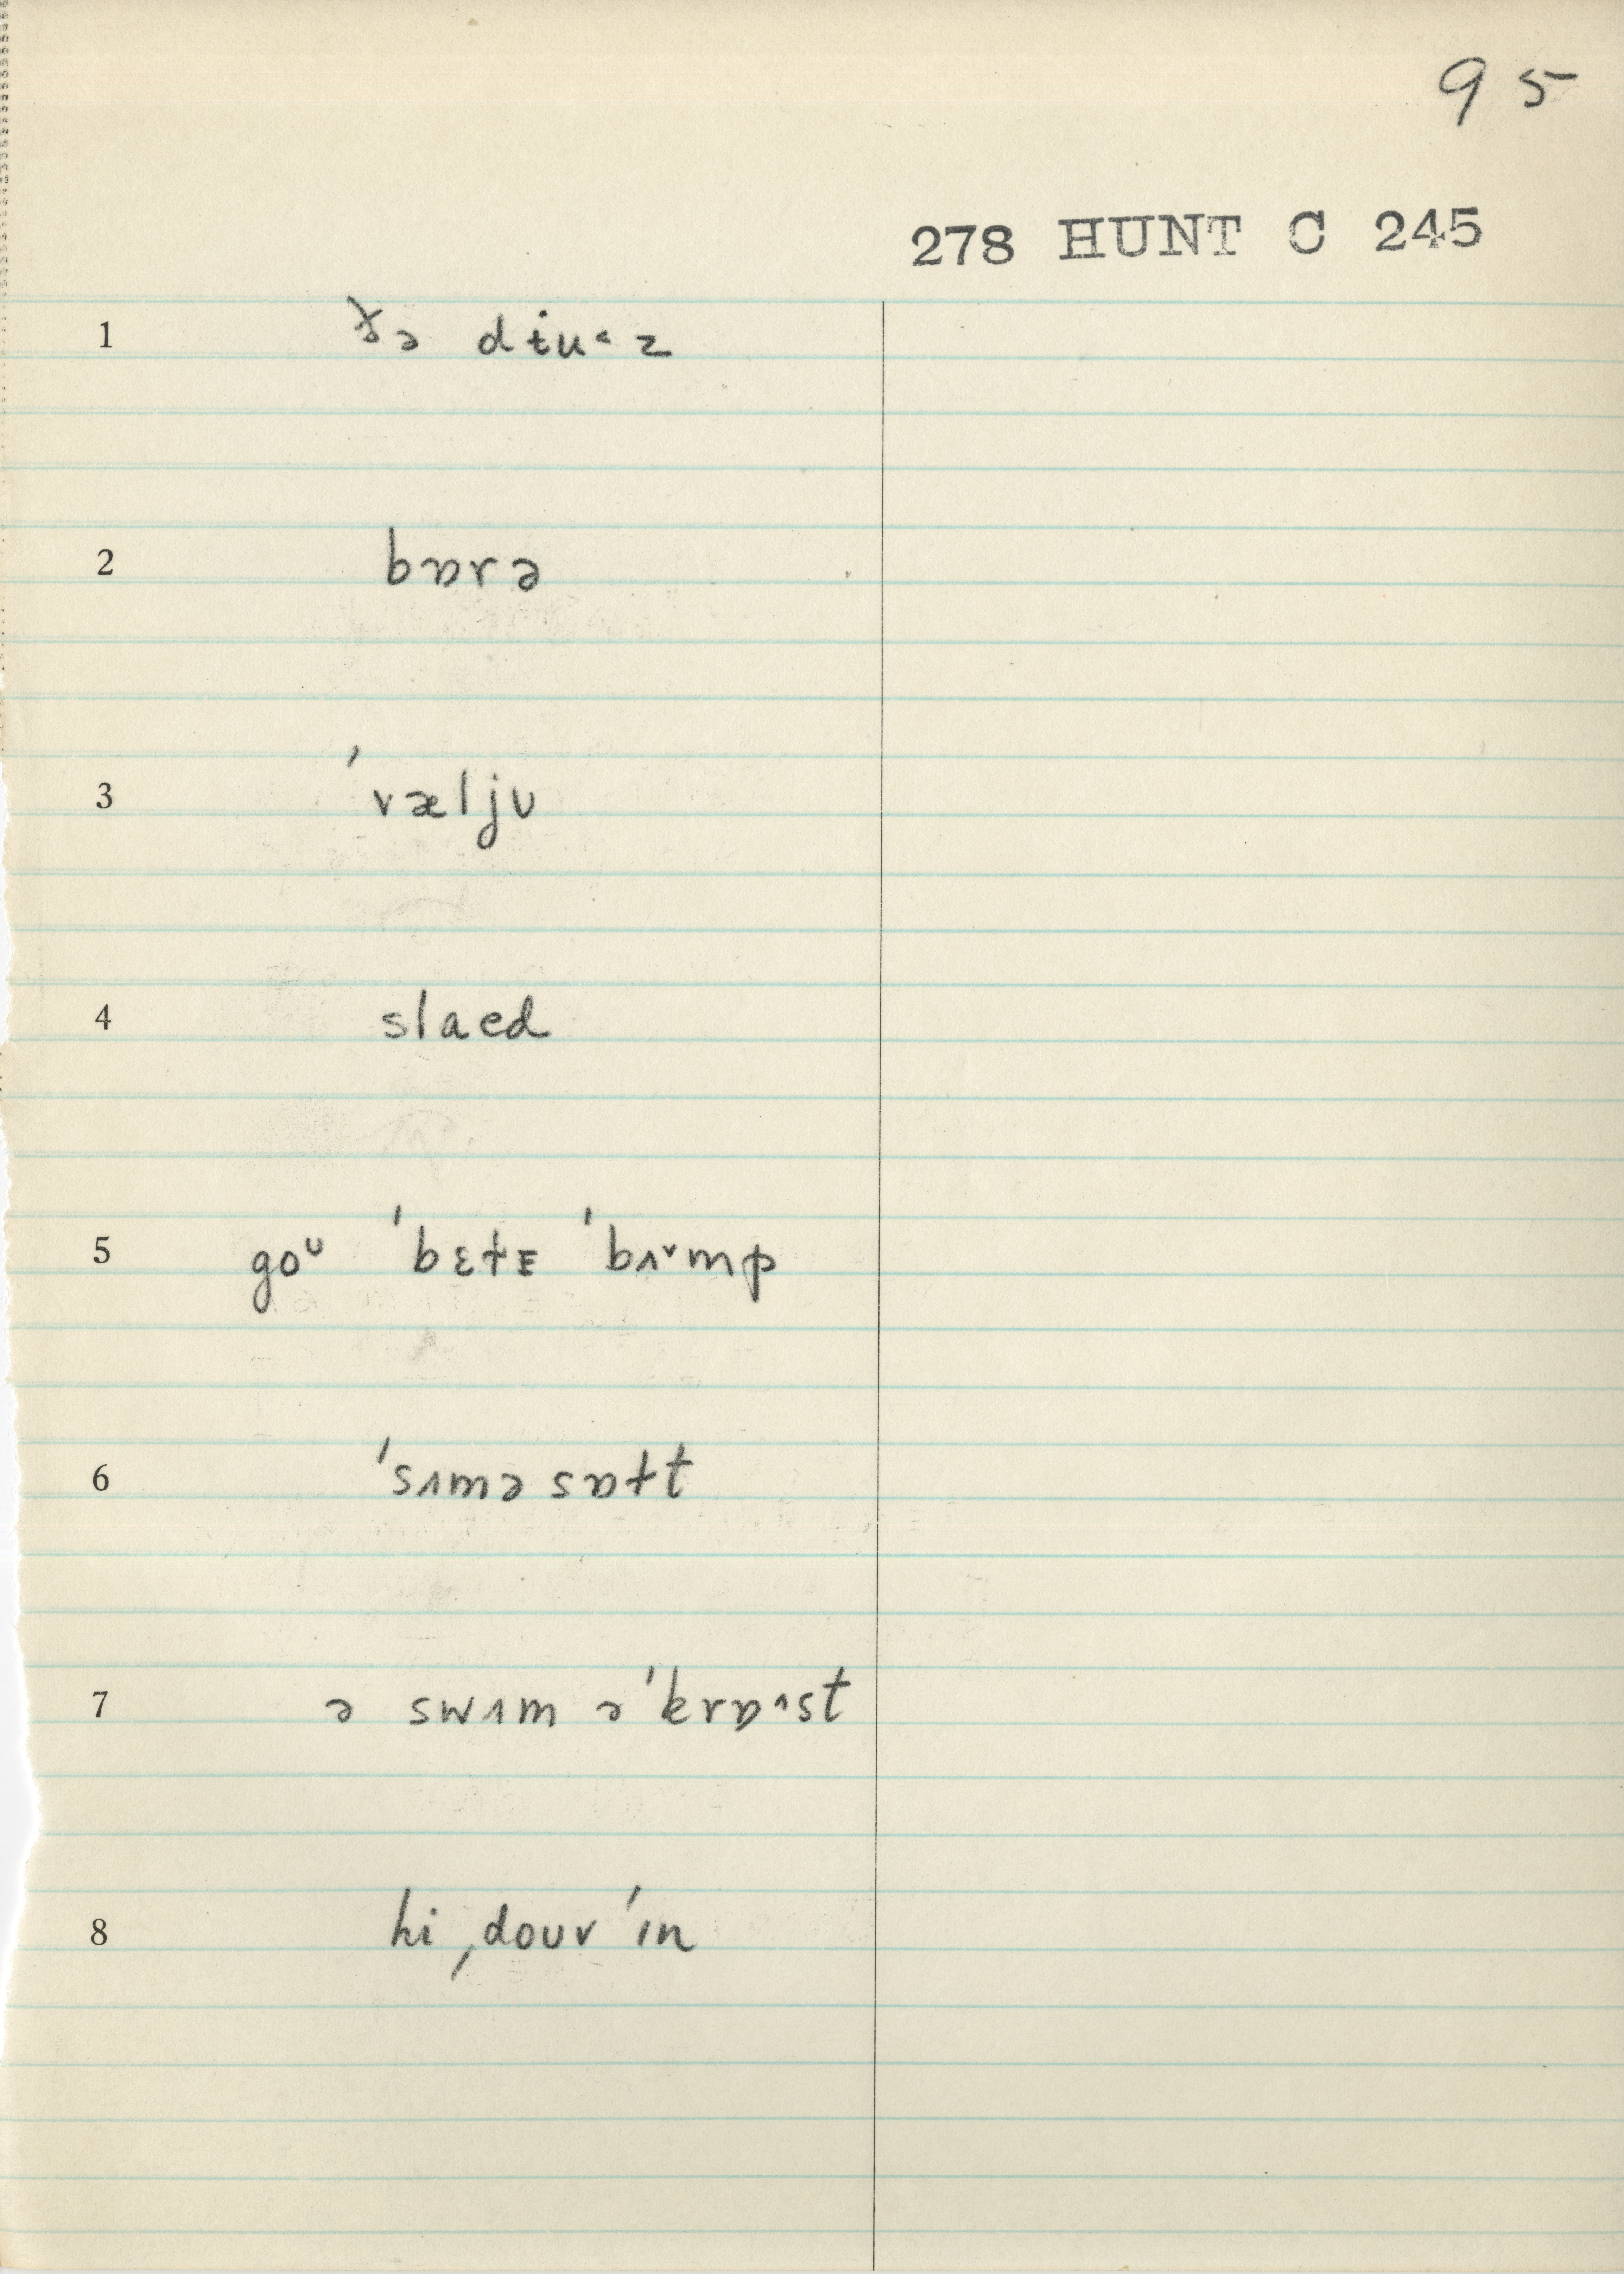 95
278 HUNT C 245
1 ðə dɨu˂z
2 bɒrə
3 ˈvæljᴜ
4 slaed
5 goᵁ ˈbɛɫᵻ ˈbʌ˅mp
6 ˈsʌmə sɒɫt
7 ə swɪm əˈkrɒ˄st
8 hi ˌdouv ˈɪn